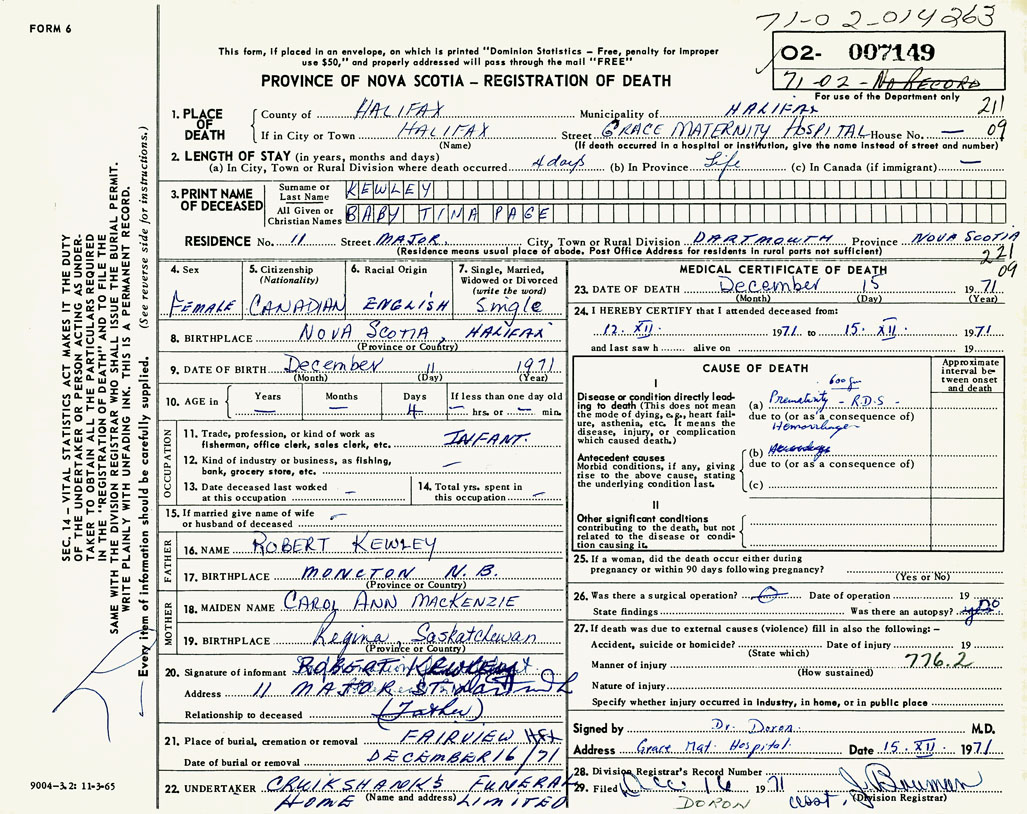 71-02-014363
FORM 6
02- 007149
This form, if placed in an envelope, on which is printed "Dominion Statistics – Free, penalty for improper
use $50," and properly addressed will pass through the mail "FREE"
71-02- No RECORD
PROVINCE OF NOVA SCOTIA – REGISTRATION OF DEATH
For use of the Department only
1. PLACE OF DEATH
County of HALIFAX Municipality of HALIFAX 211
If in City or Town HALIFAX Street GRACE MATERNITY HOSPITAL House No. — 09
(Name) (If death occurred in a hospital or institution, give the name instead of street and number)
2. LENGTH OF STAY (in years, months and days)
(a) In City, Town or Rural Division where death occurred 4 days (b) In Province Life (c) In Canada (if immigrant) —
3. PRINT NAME OF DECEASED
Surname or Last Name KEWLEY
All Given or Christian Names BABY TINA PAGE
RESIDENCE No. 11 Street MAJOR City, Town or Rural Division DARTMOUTH Province NOVA SCOTIA
(Residence means usual place of abode. Post Office Address for residents in rural parts not sufficient) 221
09
4. Sex FEMALE
5. Citizenship (Nationality) CANADIAN
6. Racial Origin ENGLISH
7. Single, Married, Widowed or Divorced (write the word) Single
8. BIRTHPLACE NOVA SCOTIA, HALIFAX
(Province or Country)
9. DATE OF BIRTH December 11 1971
(Month) (Day) (Year)
10. AGE in Years — Months — Days 4 If less than one day old — hrs. or — min.
OCCUPATION
11. Trade, profession, or kind of work as
fisherman, office clerk, sales clerk, etc. INFANT.
12. Kind of industry or business, as fishing,
bank, grocery store, etc. —
13. Date deceased last worked
at this occupation —
14. Total yrs. spent in
this occupation —
15. If married give name of wife
or husband of deceased –
FATHER
16. NAME ROBERT KEWLEY
17. BIRTHPLACE MONCTON N.B.
(Province or Country)
MOTHER
18. MAIDEN NAME CAROL ANN MACKENZIE
19. BIRTHPLACE Regina, Saskatchewan
(Province or Country)
20. Signature of informant ROBERT KEWLEY
Address 11 MAJOR ST. Dartmouth
Relationship to deceased (Father)
21. Place of burial, cremation or removal FAIRVIEW HFX
Date of burial or removal DECEMBER 16/71
22. UNDERTAKER CRUIKSHANK'S FUNERAL
HOME (Name and address) LIMITED
MEDICAL CERTIFICATE OF DEATH
23. DATE OF DEATH December 15 1971
(Month) (Day) (Year)
24. I HEREBY CERTIFY that I attended deceased from:
12. XII. 1971 to 15. XII. 1971
and last saw h alive on 19
CAUSE OF DEATH
Approximate interval between onset and death
I
600 g
Disease or condition directly leading to death (This does not mean the mode of dying, e.g., heart failure, asthenia, etc. It means the disease, injury, or complication which caused death.)
(a) Prematurity - R.D.S -
due to (or as a consequence of)
Hemorrhage
Antecedent causes
Morbid conditions, if any, giving rise to the above cause, stating the underlying condition last.
(b)
due to (or as a consequence of)
(c)
II
Other significant conditions
contributing to the death, but not related to the disease or condition causing it.
25. If a woman, did the death occur either during
pregnancy or within 90 days following pregnancy?
(Yes or No)
26. Was there a surgical operation? Date of operation 19
State findings Was there an autopsy? no
27. If death was due to external causes (violence) fill in also the following: –
Accident, suicide or homicide? Date of injury 19
(State which)
Manner of injury 776.2
(How sustained)
Nature of injury
Specify whether injury occurred in industry, in home, or in public place
Signed by Dr. Doron M.D.
Address Grace Mat. Hospital Date 15. XII 1971
28. Division Registrar's Record Number
29. Filed Dec. 16 1971 J. Bowman
DORON (Division Registrar)
SEC. 14 – VITAL STATISTICS ACT MAKES IT THE DUTY
OF THE UNDERTAKER OR PERSON ACTING AS UNDER-
TAKER TO OBTAIN ALL THE PARTICULARS REQUIRED
IN THE "REGISTRATION OF DEATH" AND TO FILE THE
SAME WITH THE DIVISION REGISTRAR WHO SHALL ISSUE THE BURIAL PERMIT.
WRITE PLAINLY WITH UNFADING INK. THIS IS A PERMANENT RECORD.
Every item of information should be carefully supplied. (See reverse side for instructions.)
9004-3.2: 11-3-65